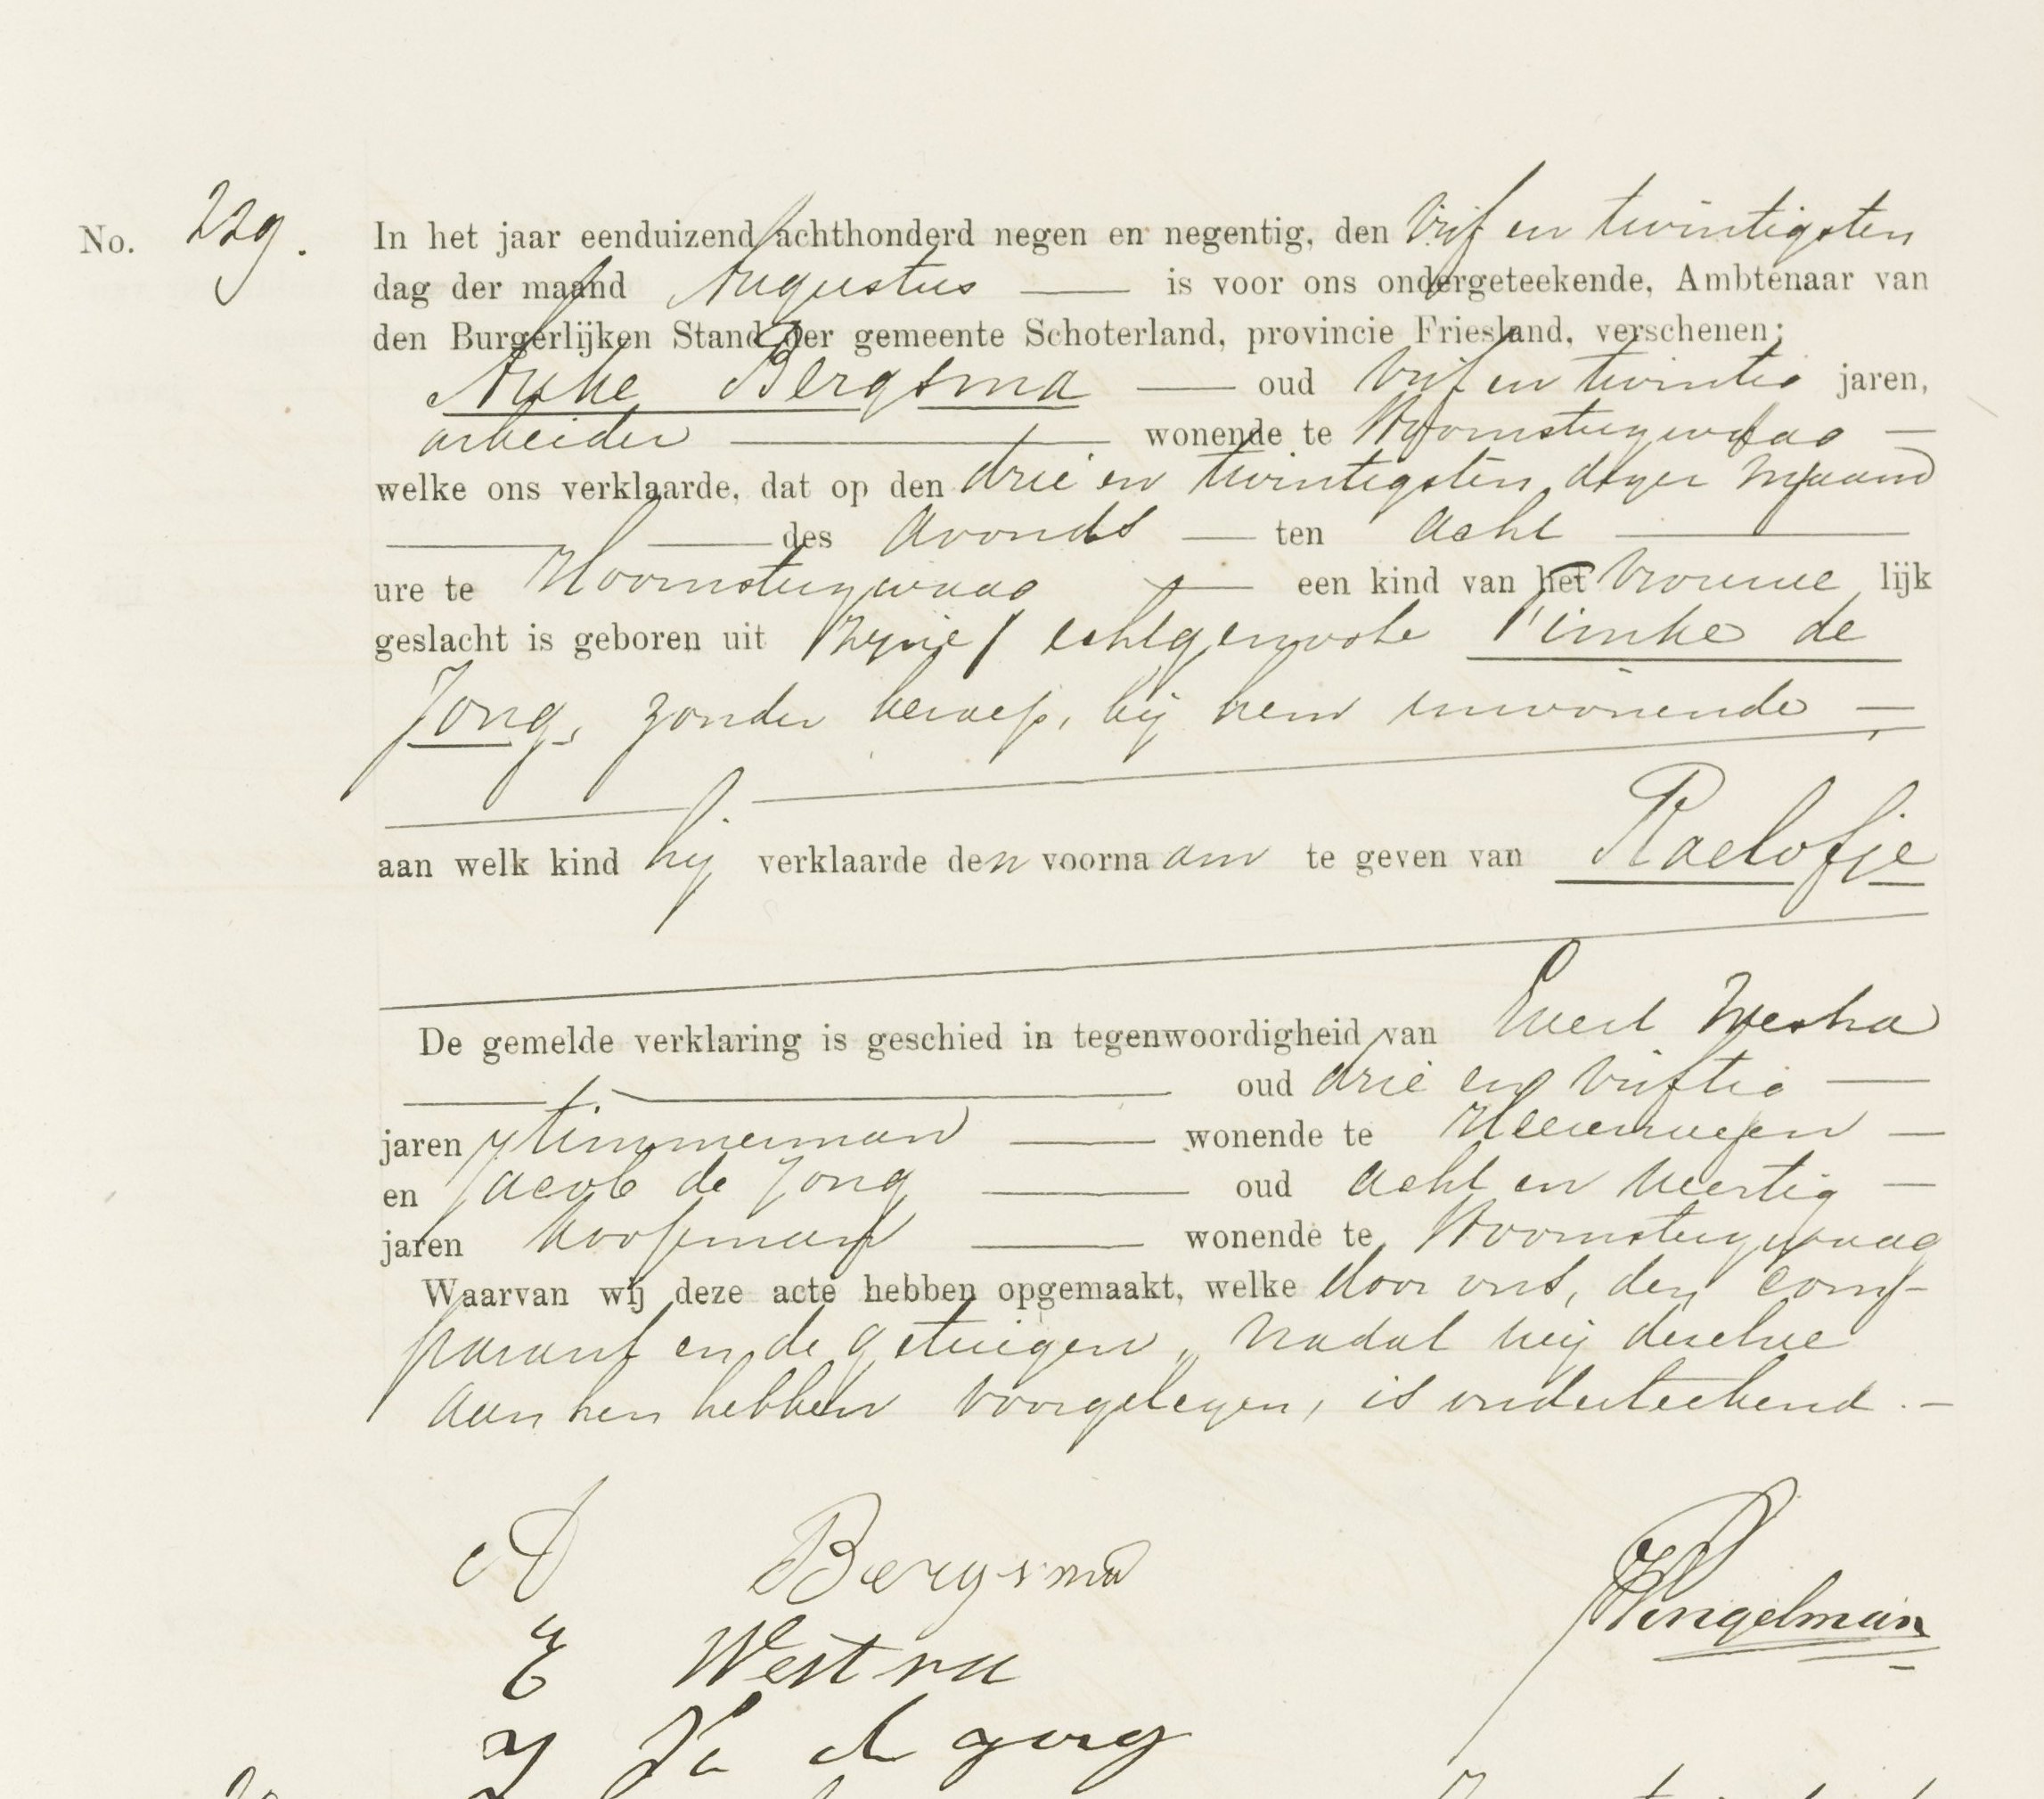 No. 229. In het jaar eenduizend achthonderd negen en negentig, den vijf en twintigsten
dag der maand Augustus is voor ons ondergeteekende, Ambtenaar van
den Burgerlijken Stand der gemeente Schoterland, provincie Friesland, verschenen;
Auke Bergsma oud vijf en twintig jaren,
arbeider wonende te Hoornsterzwaag
welke ons verklaarde, dat op den drie en twintigsten dezer maand
des avonds ten acht
ure te Hoornsterzwaag een kind van het vrouwe lijk
geslacht is geboren uit zijne echtgenoote Fimke de
Jong, zonder beroep, bij hem inwonende
aan welk kind hij verklaarde den voornaam te geven van Roelofje
De gemelde verklaring is geschied in tegenwoordigheid van Evert Westra
oud drie en vijftig
jaren timmerman wonende te Heerenveen
en Jacob de Jong oud acht en veertig
jaren koopman wonende te Hoornsterzwaag
Waarvan wij deze acte hebben opgemaakt, welke door ons, den com-
parant en de getuigen, nadat wij dezelve
aan hen hebben voorgelezen, is onderteekend.
A Bergsma
E Westra
Engelman
J Ja de jong